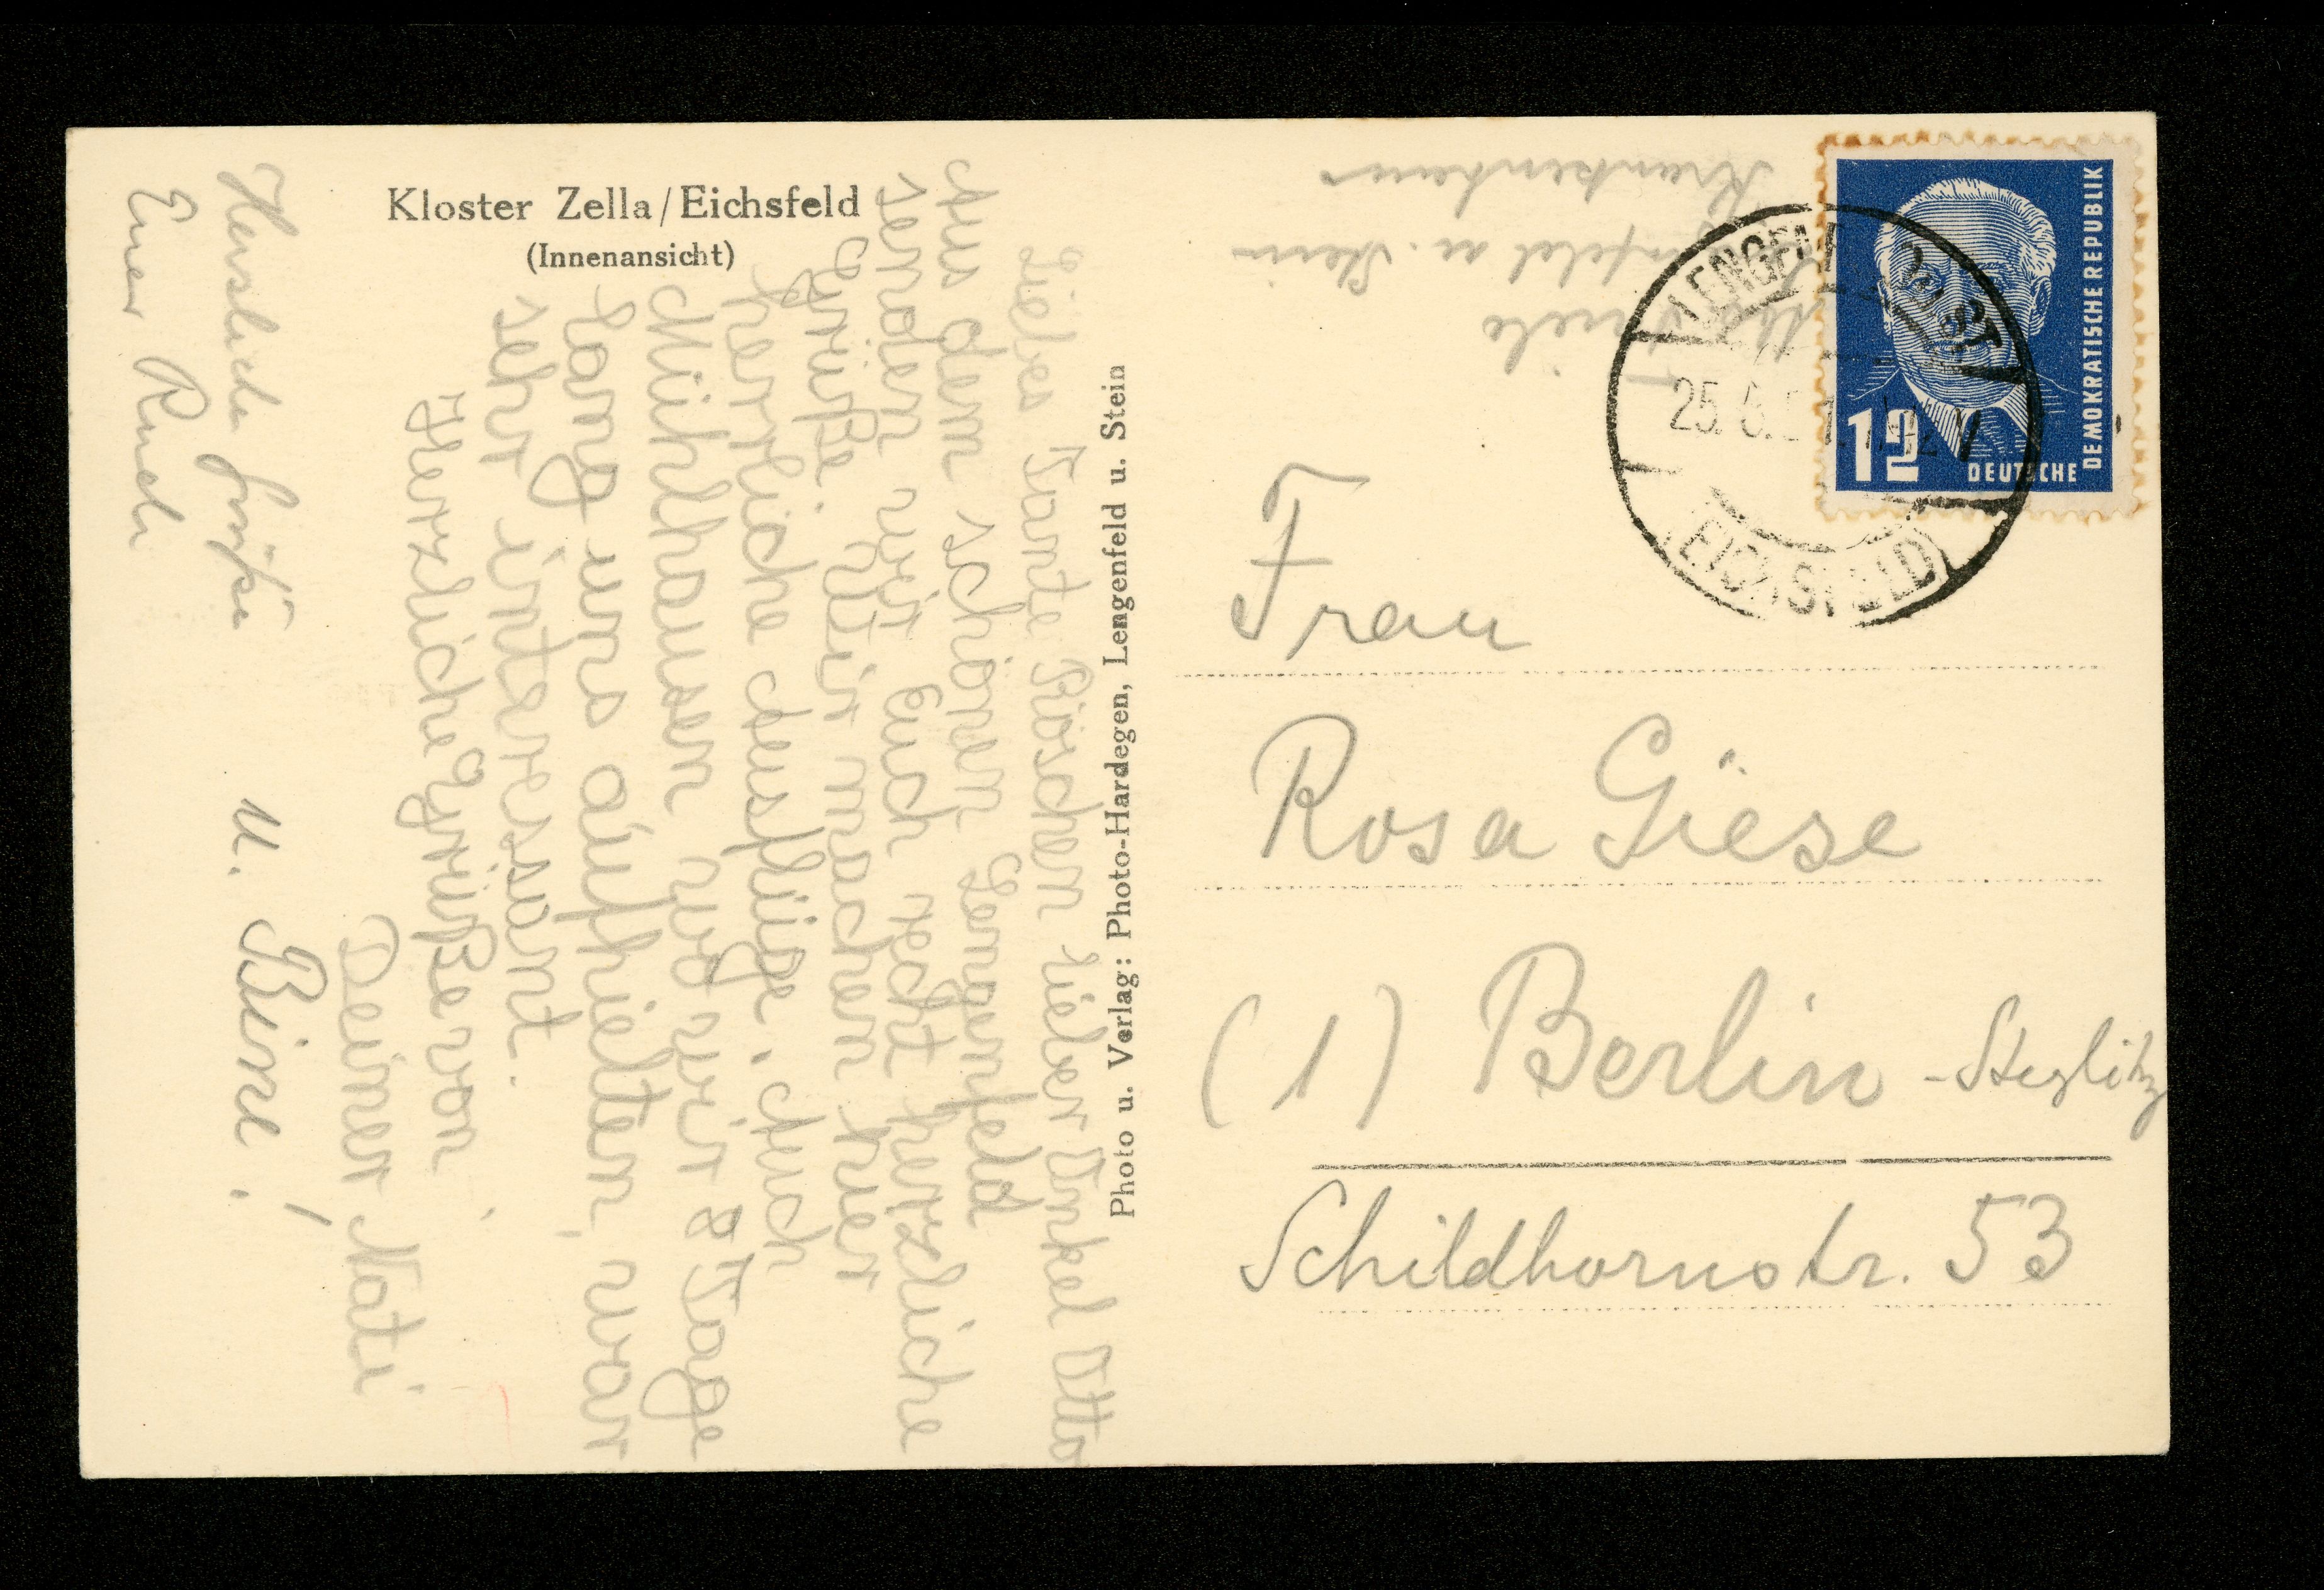 Kloster Zella/Eichsfeld
(Innenansicht)
Liebes Tante Röschen lieber Onkel Otto
Aus dem schönen Lengenfeld
senden wir Euch recht herzliche
Grüße. Wir machen hier
herrliche Ausflüge. Auch
Mühlhausen wo wir 8 Tage
lang uns aufhielten, war
sehr interessant.
Herzliche Grüße von
Deiner Kati
Herzliche Grüße
Euer Rudi
u. Bine!
Photo u. Verlag: Photo-Hardegen, Lengenfeld u. Stein
u. Stein
Krankenhaus
LENGENFELD ü. ST
25.
EICHSFELD
12
DEUTSCHE
DEMOKRATISCHE REPUBLIK
Frau
Rosa Giese
(1) Berlin - Steglitz
Schildhornstr. 53